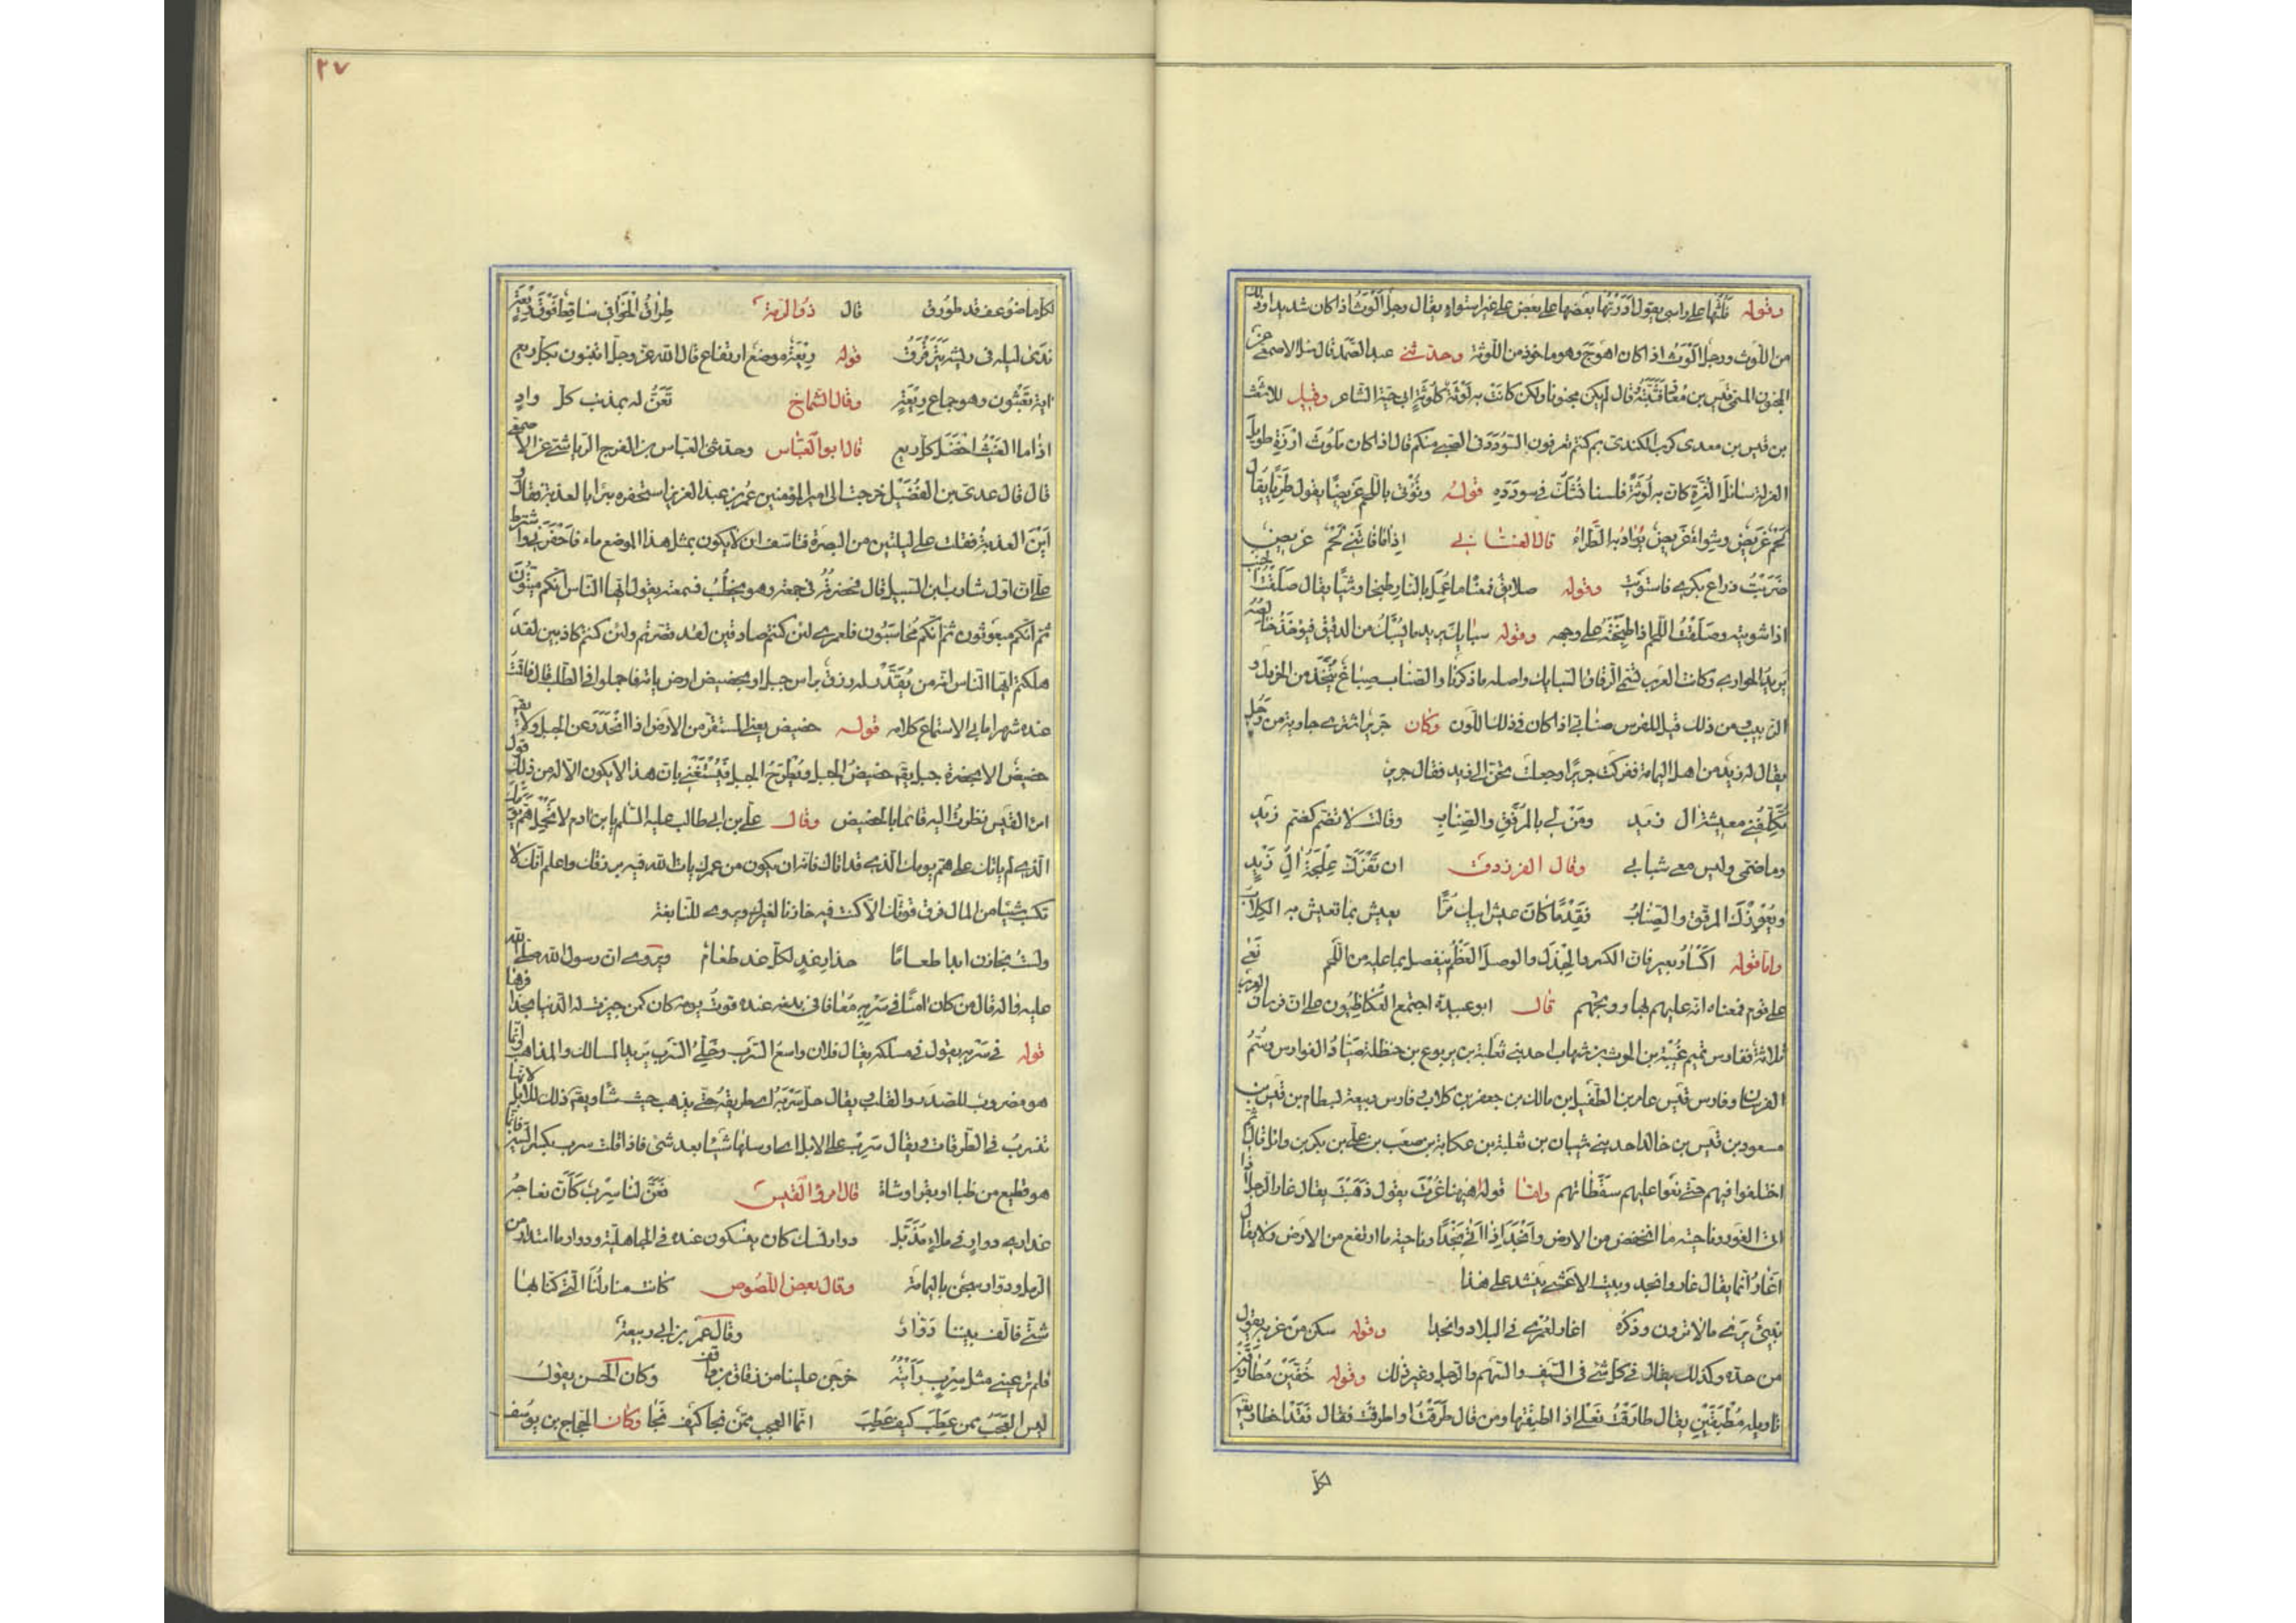 وقوله تلثها على راسي يقول ادرتها بعضها على بعض على غير استواء يقال رجل الوث اذا كان شديدا وذلك
من اللوث ورجل الوث اذا كان اهوج وهو ماخوذ من اللوثة وحدثني عبد الصمد قال سئل الاصمعي عن
المجنون المسمى قيس بن معاذ فثبته وقال لم يكن مجنونا ولكن كانت به لوثة كلوثة ابي حية الشاعر وقيل للاشعث
بن قيس بن معدى كرب الكندى بم كنتم تعرفون السؤدد فى الصبى منكم قال اذا كان ملوث الازرة طويل
الغرلة سائل الغرة كان به لوثة فلسنا نشك في سودده قوله ونؤتى باللحم غريضا يقول طريا يقال
لحم غريض وشواء غريض يراد به الطراء قال الغسانى اذا ما فاتنى لحم غريض
ضربت ذراع بكرى فاشتويت وقوله صلايق فمعناه ما عمل بالنار طبخا وشيا يقال صلقت الجنب
اذا شويته وصلقت اللحم اذا طبخته على وجهه وقوله سبايك يريد ما يسبك من الدقيق فيوخذ خالصه
يريد الحوارى وكانت العرب تسمى الرقاق السبايك واصله ما ذكرنا والصناب صباغ يتخذ من الخردل و
الزبيب ومن ذلك قيل للفرس صنابى اذا كان فى ذلك اللون وكان جرير اشترى جارية من رجل
يقال له زيد من اهل اليمامة ففركت جريرا وجعلت تحن الى زيد فقال جرير
تكلفنى معيشة ال زيد ومن لى بالمرقق والصناب وقالت لا تضم كضم زيد
وما ضمى وليس معى شبابى وقال الفرزدق ان تفركك علجة ال زيد
ويعوزك المرقق والصناب فقدما كان عيش ابيك مرا يعيش بما تعيش به الكلاب
واما قوله اكسار بعير فان الكسر والجدل والوصل العظم ينفصل بما عليه من اللحم نعى
على قوم فمعناه انه عليهم بها ووبخهم قال ابو عبيدة اجتمع العكاظيون على ان فرسان العرب
ثلاثة ففارس تميم عتيبة بن الحرث بن شهاب احد بنى ثعلبة بن يربوع بن حنظلة صياد الفوارس وسم
الفرسان وفارس قيس عامر بن الطفيل بن مالك بن جعفر بن كلاب وفارس ربيعة بسطام بن قيس بن
مسعود بن قيس بن خالد احد بنى شيبان بن ثعلبة بن عكابة بن صعب بن على بن بكر بن وائل قال ثم
اختلفوا فيهم حتى نعوا عليهم سقطاتهم واما قوله اهيهنا غرت يقول ذهبت يقال غار الرجل اذا
اتى الغور وناحيته ما انخفض من الارض وانجد اذا اتى نجدا وناحيته ما ارتفع من الارض ولا يقال
اغار انما يقال غار وانجد وبيت الاعشى ينشد على هذا
نبى يرى ما لا ترون وذكره اغار لعمرى فى البلاد وانجدا وقوله سكن من غربه يقول
من حده وكذلك يقال فى كل شئ فى السيف والسهم والرجل وغير ذلك وقوله خفين مطارقين
تاويله مطبقين يقال طارقت نعلى اذا اطبقتها ومن قال طرقت او اطرقت فقال فقد اخطا ويقال
لكل
٣٧
لكل ما ضوعف قد طورق قال ذو الرمة طراق الخوافى ساقط فوق ريعة
ندى ليله فى ريشه يترقرق قوله ريعة موضع ارتفاع قال الله عز وجل اتبنون بكل ريع
اية تعبثون وهو جماع ريعة وقال الشماخ تعن له بمذنب كل واد
اذا ما الغيث اخضل كل ريع قال ابو العباس وحدثنى العباس بن الفرج الرياشى عن الاصمعى
قال قال عدى بن الفضيل خرجت الى امير المؤمنين عمر بن عبد العزيز استحفره بئرا بالعذبة فقال لى
اين العذبة فقلت على ليلتين من البصرة فتاسف ان لا يكون بمثل هذا الموضع ماء فاحفرنى واشترط
على ان اول شارب ابن السبيل قال فحضرته فى جمعة وهو يخطب فسمعته يقول ايها الناس انكم ميتون
ثم انكم مبعوثون ثم انكم محاسبون فلعمرى لئن كنتم صادقين لقد قصرتم ولئن كنتم كاذبين لقد
هلكتم ايها الناس انه من يقدر له رزق براس جبل او بحضيض ارض ياته فاجملوا فى الطلب قال فاقمت
عنده شهرا ما بى الا استماع كلامه قوله حضيض يعنى المستقر من الارض اذا انحدر عن الجبل ولا يقال
حضيض الا بحضرة جبل يقال حضيض الجبل ويطرح الجبل فيستغنى بان هذا لا يكون الا له من ذلك قول
امرئ القيس نظرت اليه قائما بالحضيض وقال على بن ابى طالب عليه السلم يا بن ادم لا تحمل هم يومك
الذى لم ياتك على هم يومك الذى قد اتاك فانه ان يكون من عمرك يات الله فيه برزقك واعلم انك لا
تكسب شيئا من المال فوق قوتك الا كنت فيه خازنا لغيرك ويروى للنابغة
ولست بخازن ابدا طعاما حذار غد لكل غد طعام ويروى ان رسول الله صلى الله
عليه واله قال من كان امنا فى سربه معافا فى بدنه عنده قوت يومه كان كمن حيزت له الدنيا بحذافيرها
قوله فى سربه يقول فى مسلكه يقال فلان واسع السرب وخلى السرب يريد المسالك والمذاهب وانما
هو مضروب للصدر والقلب يقال خل سربه اى طريقه حتى يذهب حيث شاء ويقال ذلك للابل لانها
تنسرب فى الطرقات ويقال سرب على الابل اى ارسلها شيئا بعد شئ فاذا قلت سرب بكسر السين فانما
هو قطيع من ظبا او بقر او شاة قال امرؤ القيس فعن لنا سرب كأن نعاجه
عذارى دوار فى ملاء مذيل دوار نسك كان ينسكون عنده فى الجاهلية ودوار ما استدار من
الرمل ودوار سجن باليمامة وقال بعض اللصوص كانت منازلنا التى كنا بها
شتى فالف بيننا دوار وقال عمر بن ابى ربيعة
فلم تر عينى مثل سرب رايته خرجن علينا من زقاق بن واقف وكان الحسن يقول
ليس العجب ممن عطب كيف عطب انما العجب ممن نجا كيف نجا وكان الحجاج بن يوسف